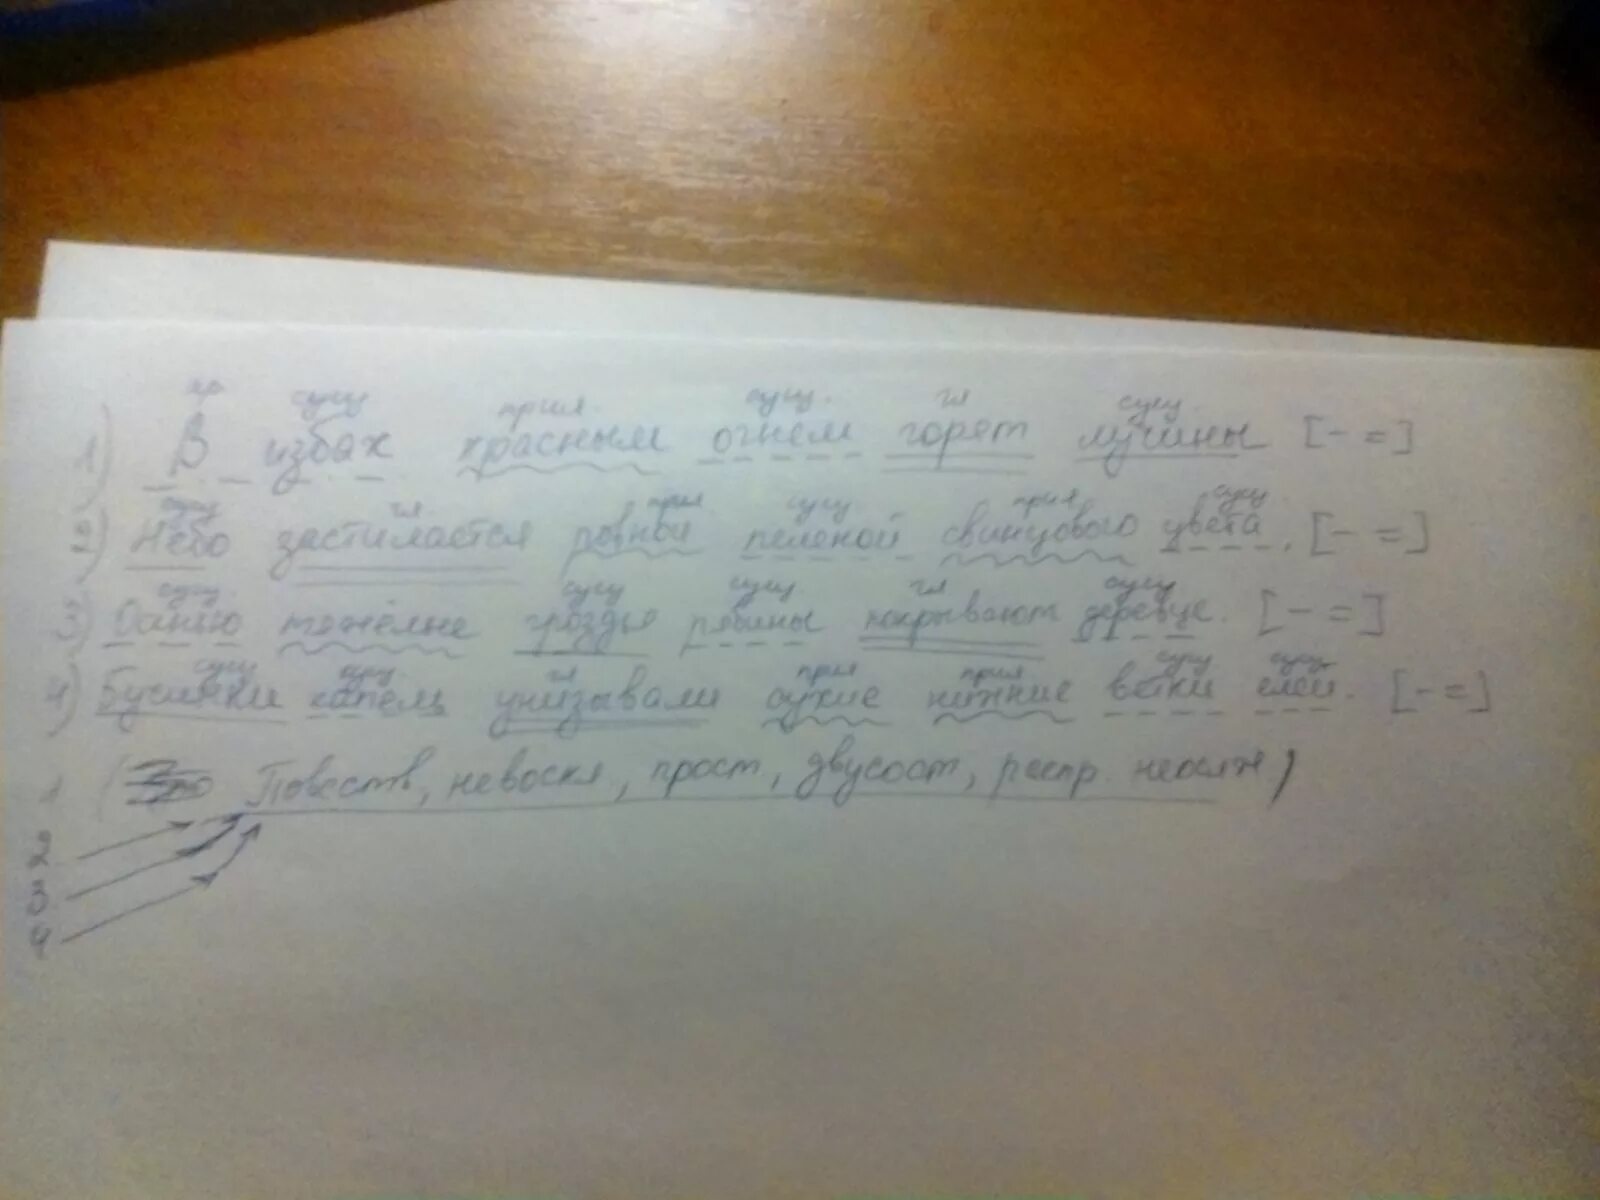 пр сущ прил. сущ. гл сущ.
1) В избах красным огнем горят лучины [- =]
сущ гл прил сущ прил сущ
2) Небо застилается ровной пеленой свинцового цвета. [- =]
сущ. сущ сущ. гл сущ
3) тяжёлые гроздья рябины покрывают деревце. [- =]
сущ сущ гл прил прил сущ сущ
4) Бусинки капель унизывали сухие нижние ветки елей. [- =]
1 ( Повеств, невоскл, прост, двусост, распр. неослж)
2
3
4